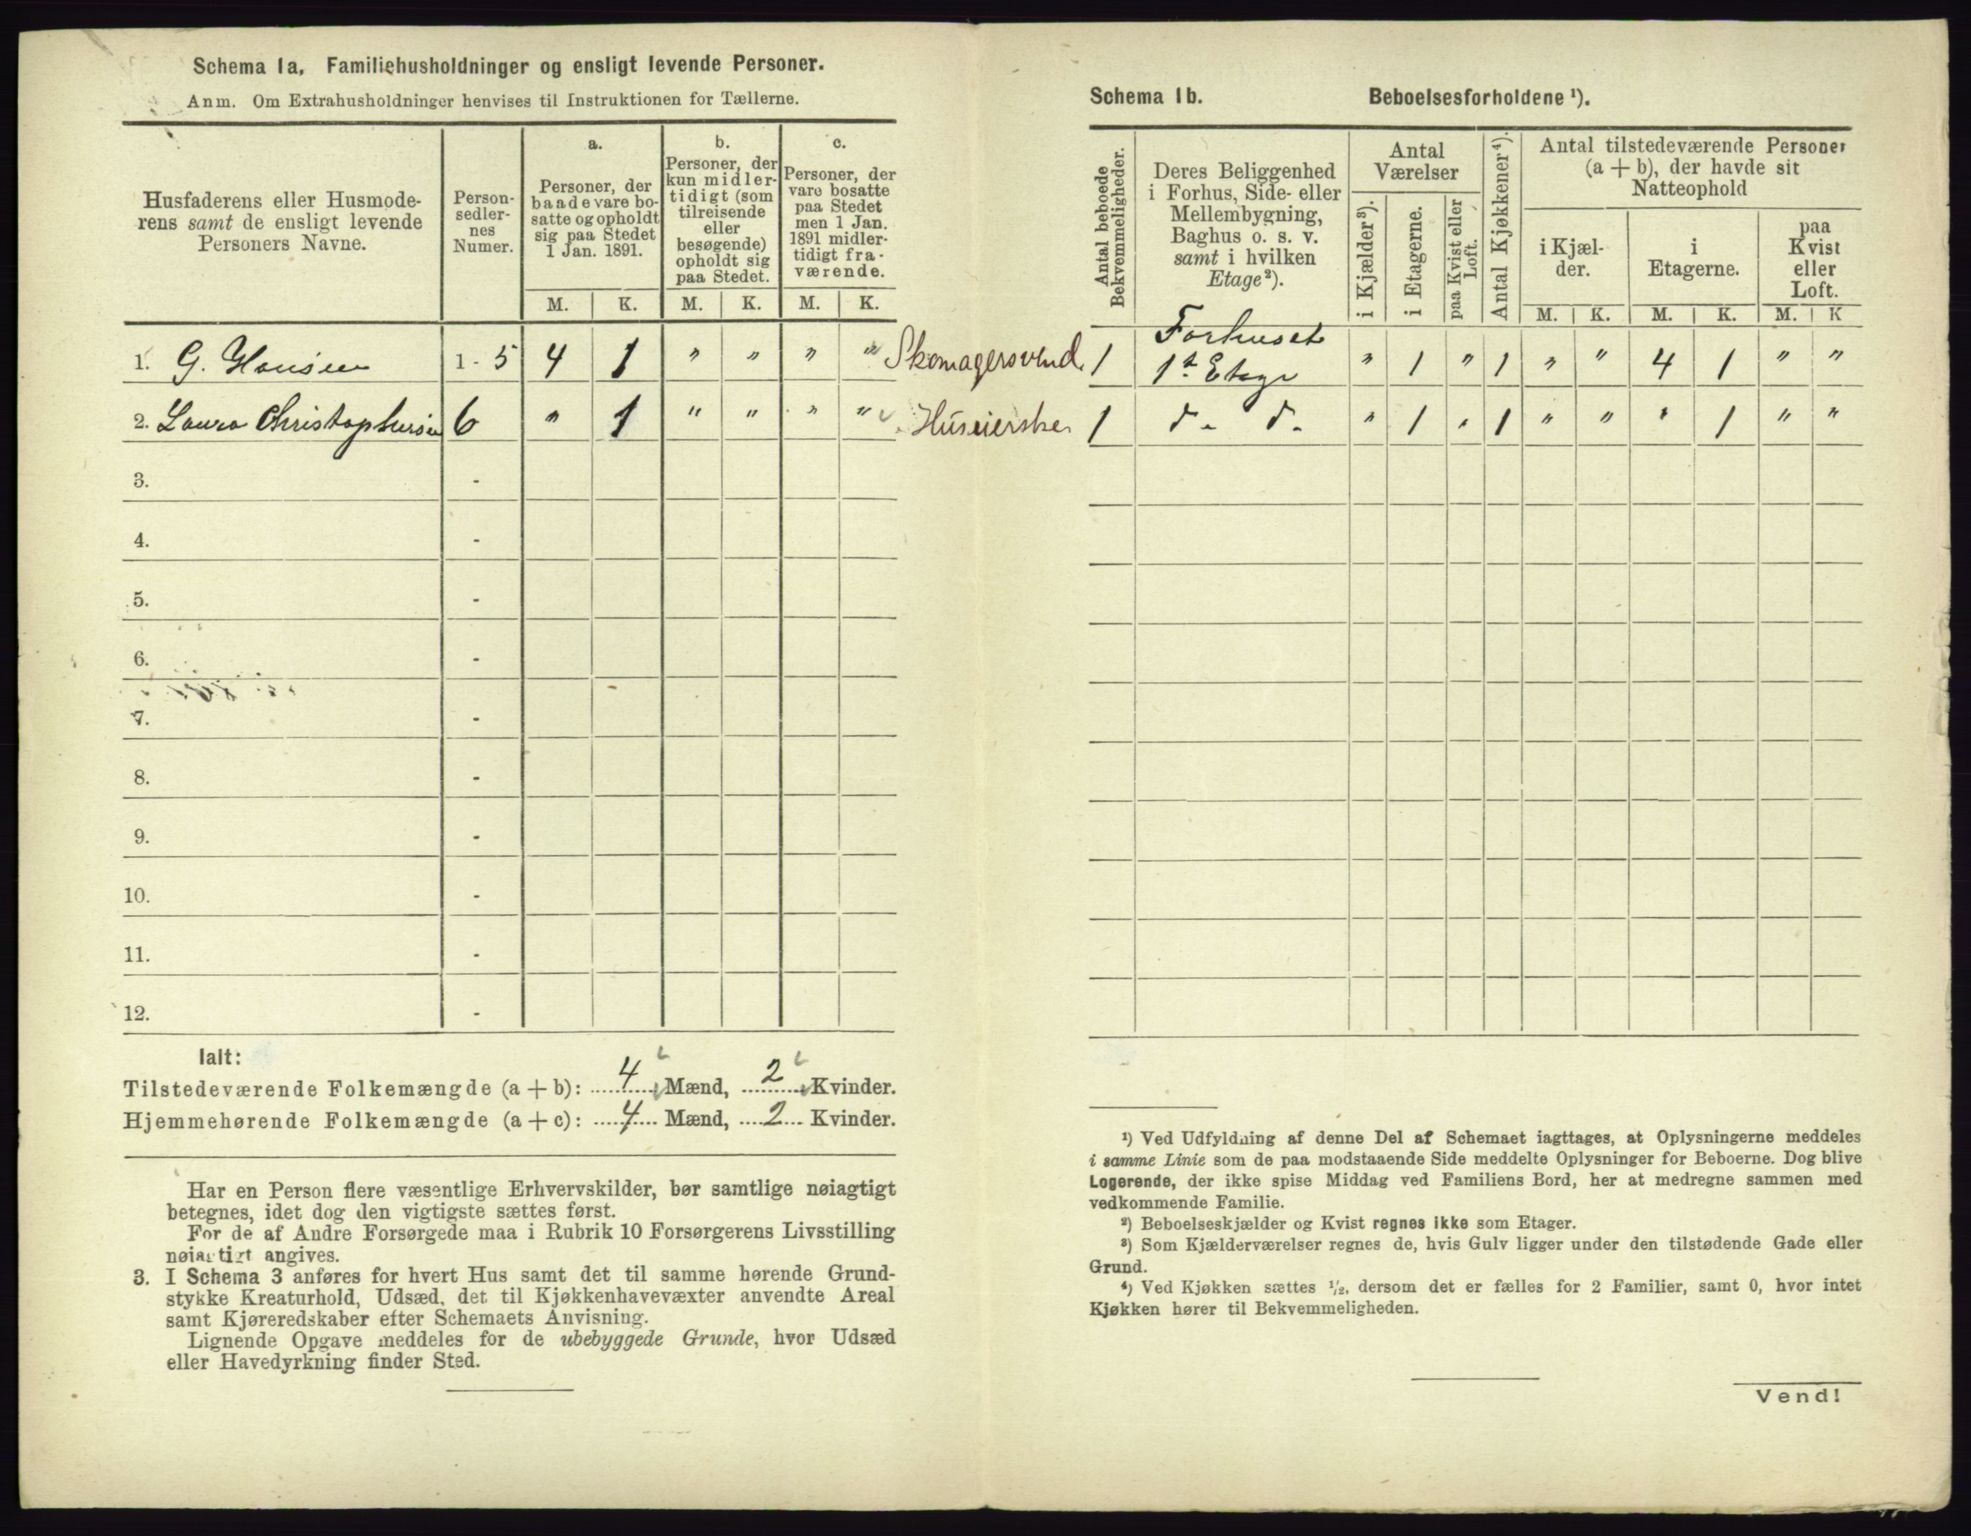 Schema 1a, Familiehusholdninger og ensligt levende Personer.
Anm. Om Extrahusholdninger henvises til Instruktionen for Tællerne.
Husfaderens eller Husmode-
rens samt de ensligt levende
Personers Navne.
Person-
sedler-
nes
Numer.
a.
Personer, der
baade vare bo-
satte og opholdt
sig paa Stedet
1 Jan. 1891.
b.
Personer, der
kun midler-
tidigt (som
tilreisende
eller
besøgende)
opholdt sig
paa Stedet.
c.
Personer, der
vare bosatte
paa Stedet
men 1 Jan.
1891 midler-
tidigt fra-
værende.
M. K. M. K. M. K.
1. G. Hansen 1-5 4 1 " " " " Skomagersvend
2. Laura Christophersen 6 " 1 " " " " Huseierske
3. -
4. -
5. -
6. -
7. -
8. -
9. -
10. -
11. -
12. -
Ialt:
Tilstedeværende Folkemængde (a + b): 4 Mænd, 2 Kvinder.
Hjemmehørende Folkemængde (a + c): 4 Mænd, 2 Kvinder.
Har en Person flere væsentlige Erhvervskilder, bør samtlige nøiagtigt
betegnes, idet dog den vigtigste sættes først.
For de af Andre Forsørgede maa i Rubrik 10 Forsørgerens Livsstilling
nøiagtigt angives.
3. I Schema 3 anføres for hvert Hus samt det til samme hørende Grund-
stykke Kreaturhold, Udsæd, det til Kjøkkenhavevæxter anvendte Areal
samt Kjøreredskaber efter Schemaets Anvisning.
Lignende Opgave meddeles for de ubebyggede Grunde, hvor Udsæd
eller Havedyrkning finder Sted.
Schema 1b. Beboelsesforholdene ¹).
Antal beboede
Bekvemmeligheder.
Deres Beliggenhed
i Forhus, Side- eller
Mellembygning,
Baghus o. s. v.
samt i hvilken
Etage²).
Antal
Værelser
i Kjælder³).
i Etagerne.
paa Kvist eller
Loft.
Antal Kjøkkener⁴).
Antal tilstedeværende Personer
(a + b), der havde sit
Natteophold
i Kjæl-
der.
i
Etagerne.
paa
Kvist
eller
Loft.
M. K. M. K. M. K
Forhuset
1 1st Etage " 1 " 1 " " 4 1 " "
1 d. d. " 1 " 1 " " " 1 " "
¹) Ved Udfyldning af denne Del af Schemaet iagttages, at Oplysningerne meddeles
i samme Linie som de paa modstaaende Side meddelte Oplysninger for Beboerne. Dog blive
Logerende, der ikke spise Middag ved Familiens Bord, her at medregne sammen med
vedkommende Familie.
²) Beboelseskjælder og Kvist regnes ikke som Etager.
³) Som Kjælderværelser regnes de, hvis Gulv ligger under den tilstødende Gade eller
Grund.
⁴) Ved Kjøkken sættes ½, dersom det er fælles for 2 Familier, samt 0, hvor intet
Kjøkken hører til Bekvemmeligheden.
Vend!